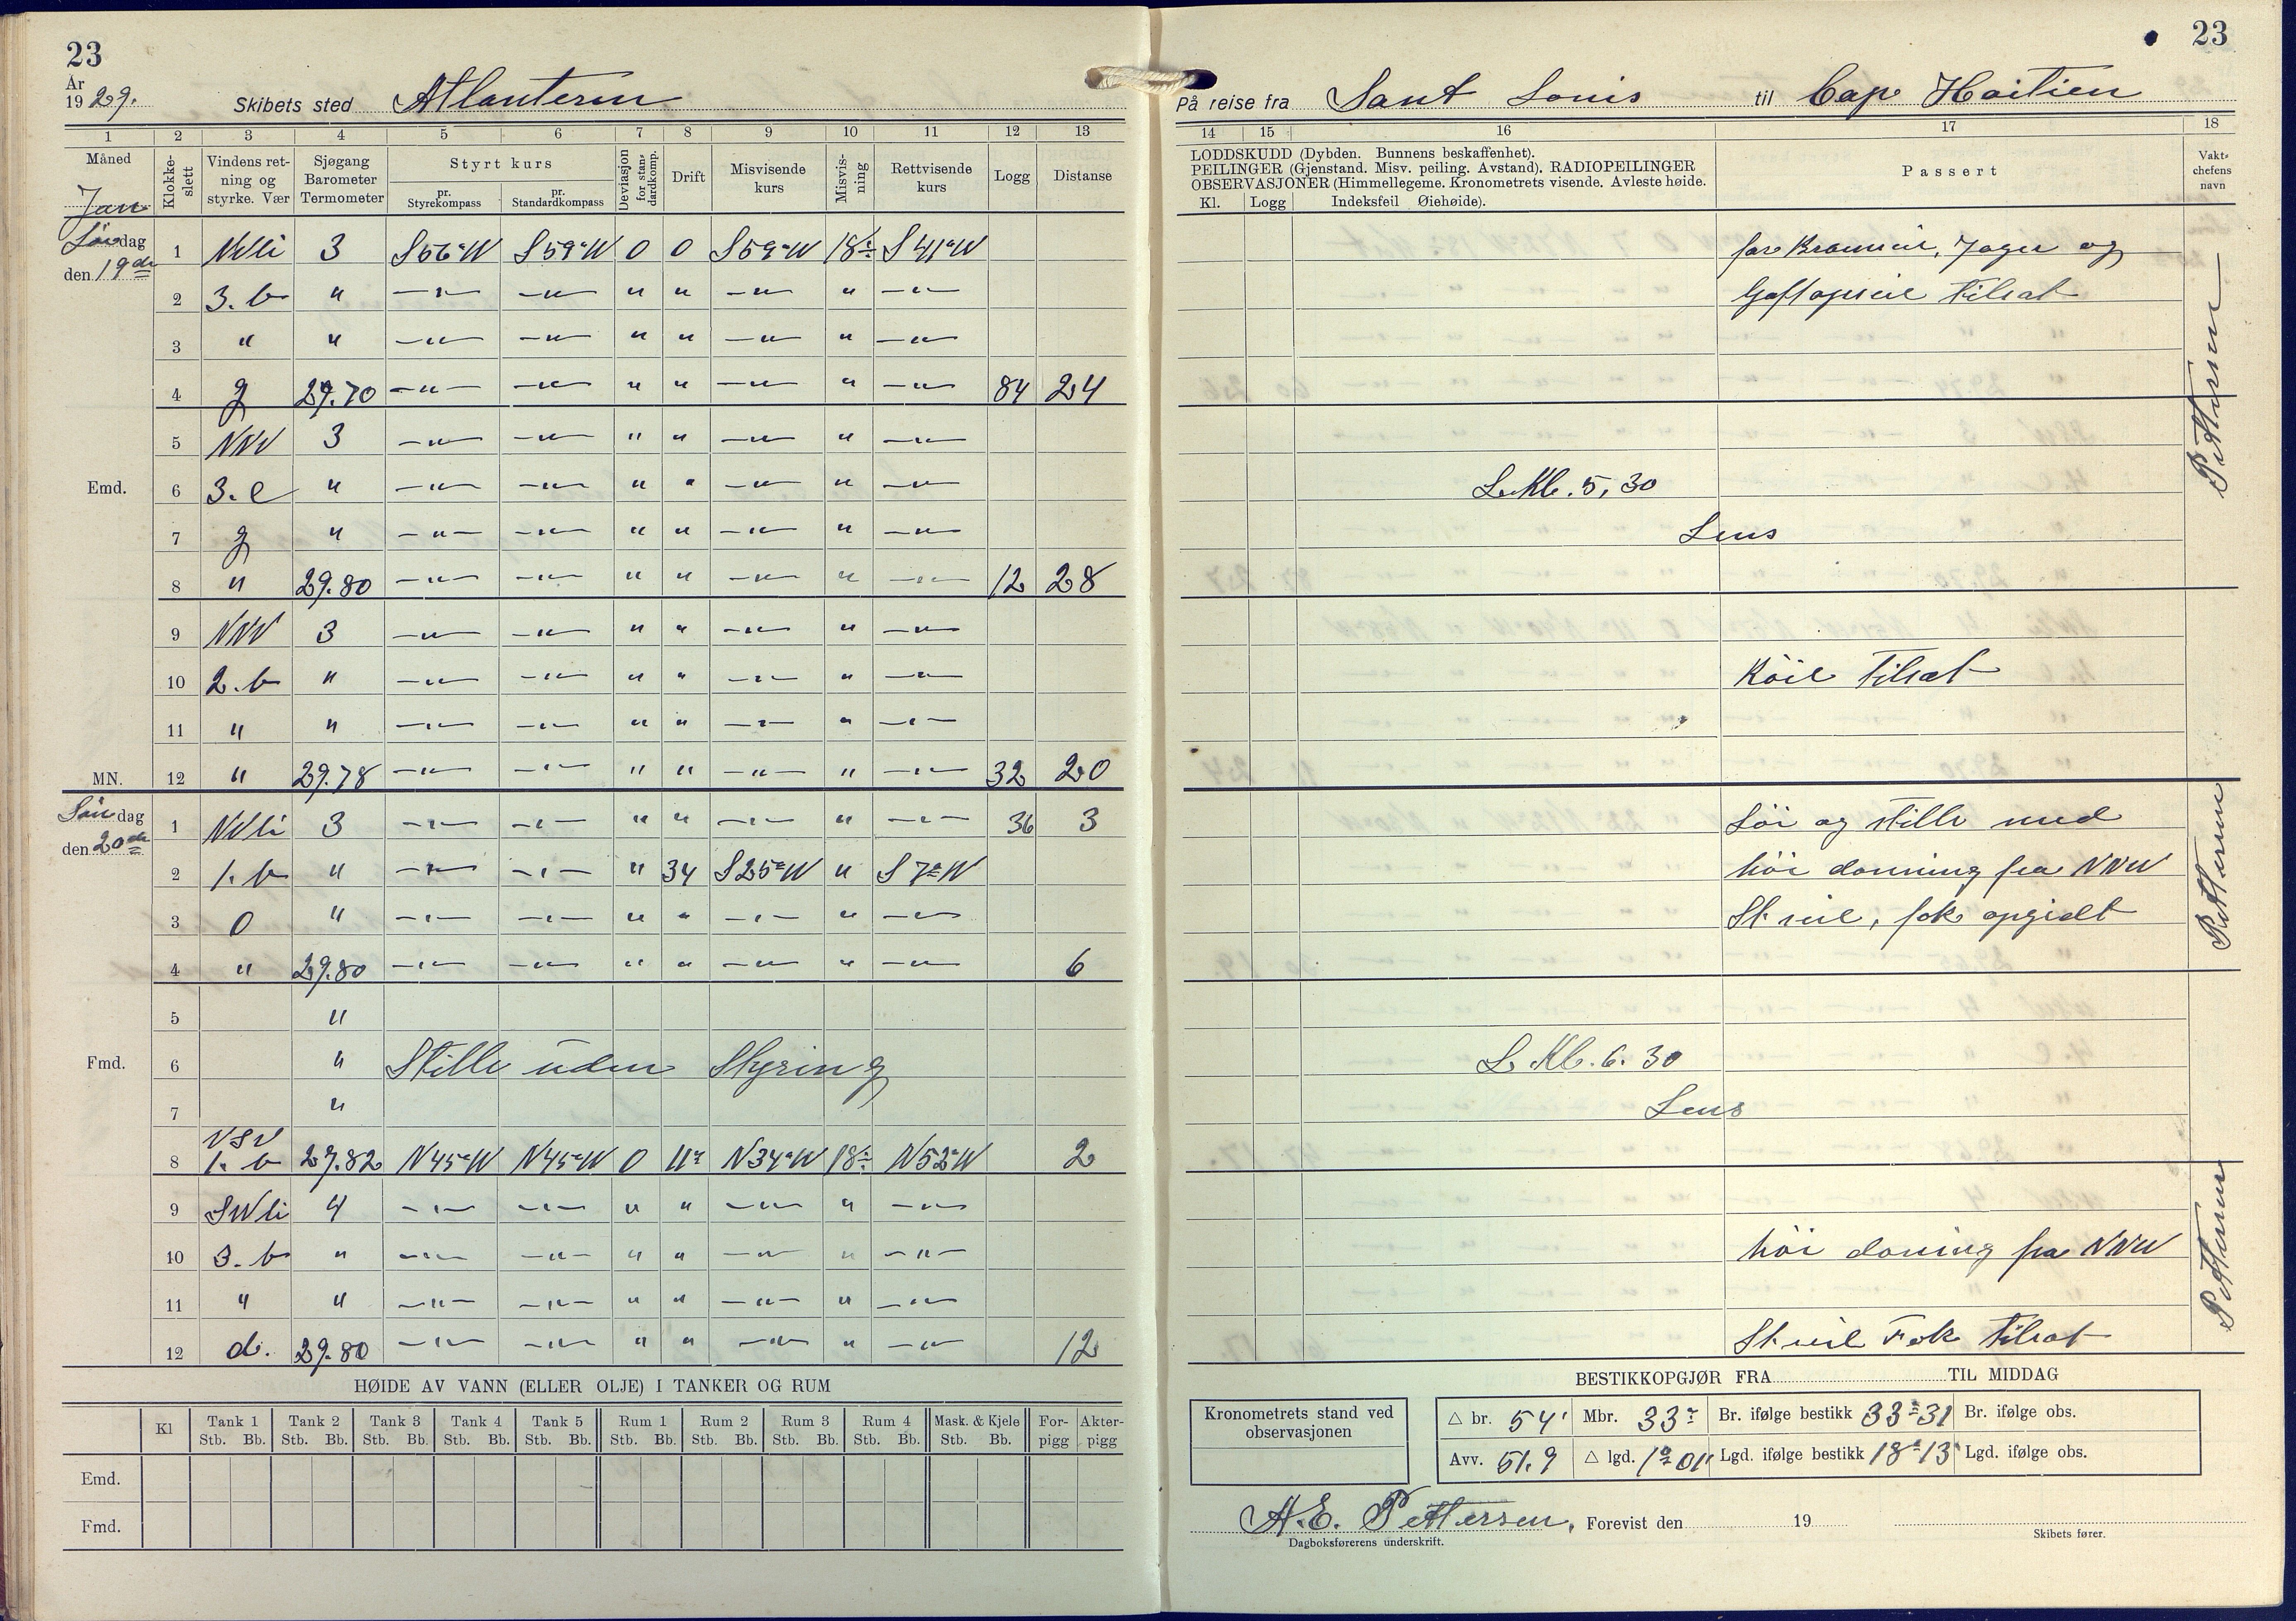 23
År
1929.
Skibets sted Atlanteren
1 2 3 4 5 6 7 8 9 10 11 12 13
Måned
Jan
Klokke-slett
Vindens ret-ning og styrke. Vær
Sjøgang Barometer Termometer
Styrt kurs
pr. Styrekompass
pr. Standardkompass
Deviasjon for stan-dardkomp.
Drift
Misvisende kurs
Misvis-ning
Rettvisende kurs
Logg
Distanse
dag den 19de
1 3 S56°W S59°W 0 0 S59°W 18 S41°W
2 3. b " —"— —"— " " —"— " —"—
3 " " —"— —"— " " —"— " —"—
4 g 29.70 —"— —"— " " —"— " —"— 84 24
5 NNV 3 —"— —"— " " —"— " —"—
Emd.
6 3. c " —"— —"— " " —"— " —"—
7 g " —"— —"— " " —"— " —"—
8 " 29.80 —"— —"— " " —"— " —"— 12 28
9 NNV 3 —"— —"— " " —"— " —"—
10 2. b " —"— —"— " " —"— " —"—
11 " " —"— —"— " " —"— " —"—
MN. 12 " 29.78 —"— —"— " " —"— " —"— 32 20
Søndag den 20de
1 3 —"— —"— " " —"— " —"— 36 3
2 1. b " —"— —"— " 34 S25°W " S7°W
3 0 " —"— —"— " " —"— " —"—
4 " 29.80 —"— —"— " " —"— " —"— 6
5 "
Fmd.
6 " Stille uden Styring
7 "
8 1. b 29.82 N45°W N45°W 0 11° N34°W 18 N52°W 2
9 4 —"— —"— " " —"— " —"—
10 3. b " —"— —"— " " —"— " —"—
11 " " —"— —"— " " —"— " —"—
12 d. 29.80 —"— —"— " " —"— " —"— 12
HØIDE AV VANN (ELLER OLJE) I TANKER OG RUM
Kl Tank 1 Tank 2 Tank 3 Tank 4 Tank 5 Rum 1 Rum 2 Rum 3 Rum 4 Mask. & Kjele For-pigg Akter-pigg
Stb. Bb. Stb. Bb. Stb. Bb. Stb. Bb. Stb. Bb. Stb. Bb. Stb. Bb. Stb. Bb. Stb. Bb. Stb. Bb.
Emd.
Fmd.
23
På reise fra Sant Louis til Cap Haitien
14 15 16 17 18
LODDSKUDD (Dybden. Bunnens beskaffenhet).
PEILINGER (Gjenstand. Misv. peiling. Avstand). RADIOPEILINGER
OBSERVASJONER (Himmellegeme. Kronometrets visende. Avleste høide.
Kl. Logg Indeksfeil Øiehøide).
Passert
Vakt-chefens navn
Jager og
Gaftopseil tilsat
L. Kl. 5,30
Lens
Röil tilsat
stille med
höi dönning fra NNW
fok opgidt
L. Kl. 6. 30
Lens
höi döning fra NNW
Fok tilsat
BESTIKKOPGJØR FRA TIL MIDDAG
Kronometrets stand ved observasjonen
△ br. 54' Mbr. 33° Br. ifølge bestikk 33°31 Br. ifølge obs.
Avv. 51.9 △ lgd. 1°01' Lgd. ifølge bestikk 18°13' Lgd. ifølge obs.
A.E. Pettersen, Forevist den 19
Dagboksførerens underskrift. Skibets fører.